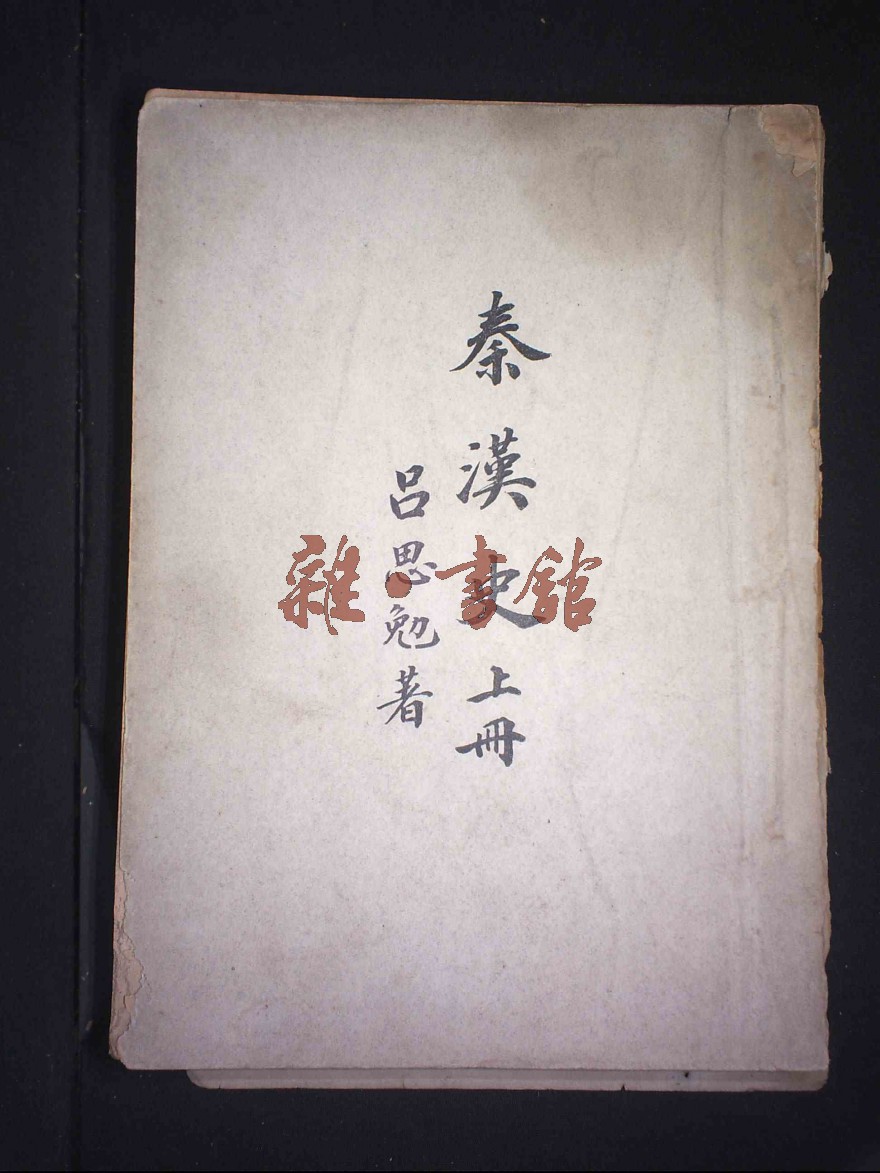 秦漢史上冊
呂思勉著
雜·書館